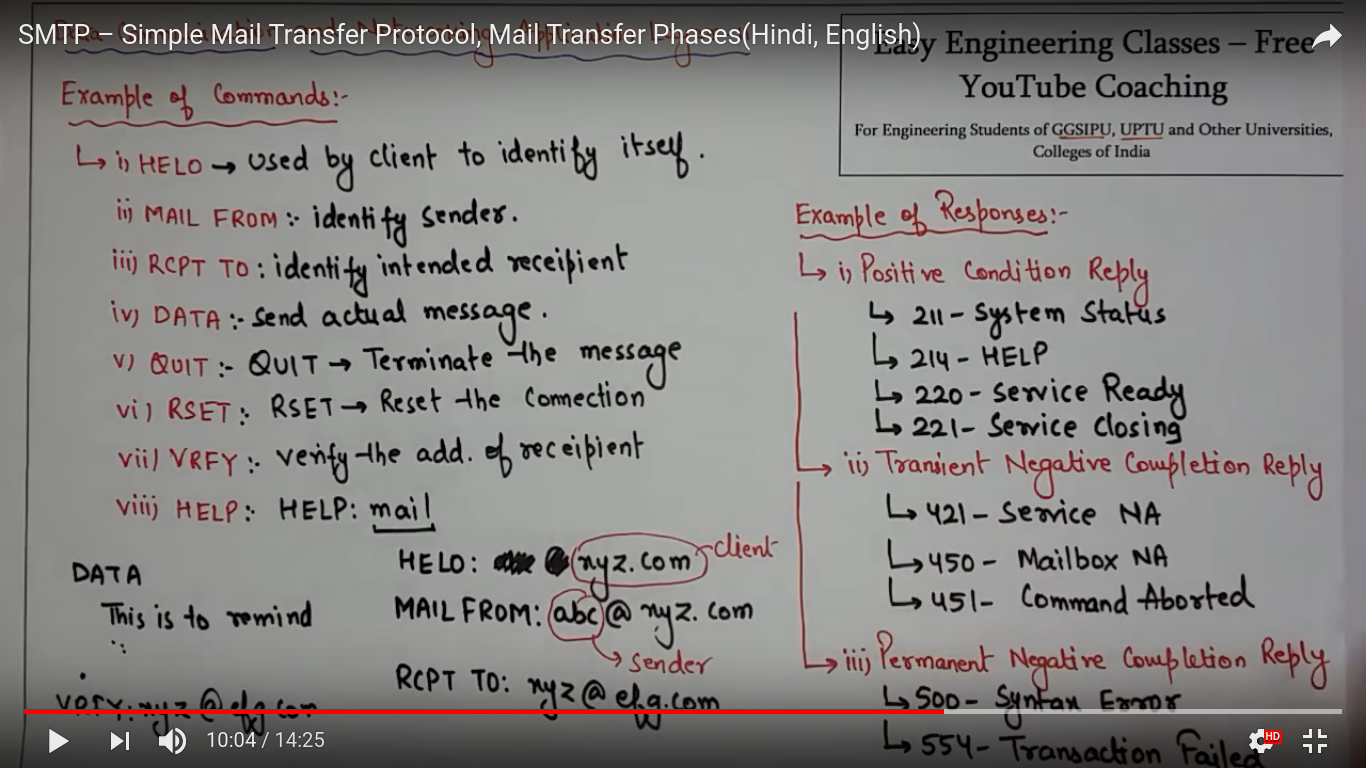 SMTP – Simple Mail Transfer Protocol, Mail Transfer Phases(Hindi, English)
Easy Engineering Classes – Free
YouTube Coaching
For Engineering Students of GGSIPU, UPTU and Other Universities,
Colleges of India
Example of Commands:-
i) HELO → Used by client to identify itself.
ii) MAIL FROM :- identify sender.
iii) RCPT TO : identify intended receipient
iv) DATA :- send actual message.
v) QUIT :- QUIT → Terminate the message
vi) RSET :- RSET → Reset the Connection
vii) VRFY :- verify the add. of receipient
viii) HELP :- HELP: mail
HELO: @ xyz.com client
MAIL FROM: abc @ xyz.com
sender
RCPT TO: xyz @ efg.com
DATA
This is to remind
VRFY: xyz @ efg.com
Example of Responses:-
i) Positive Condition Reply
211 - System Status
214 - HELP
220 - Service Ready
221 - Service Closing
ii) Transient Negative Completion Reply
421 - Service NA
450 - Mailbox NA
451 - Command Aborted
iii) Permanent Negative Completion Reply
500 - Syntax Error
554 - Transaction Failed
10:04 / 14:25
HD